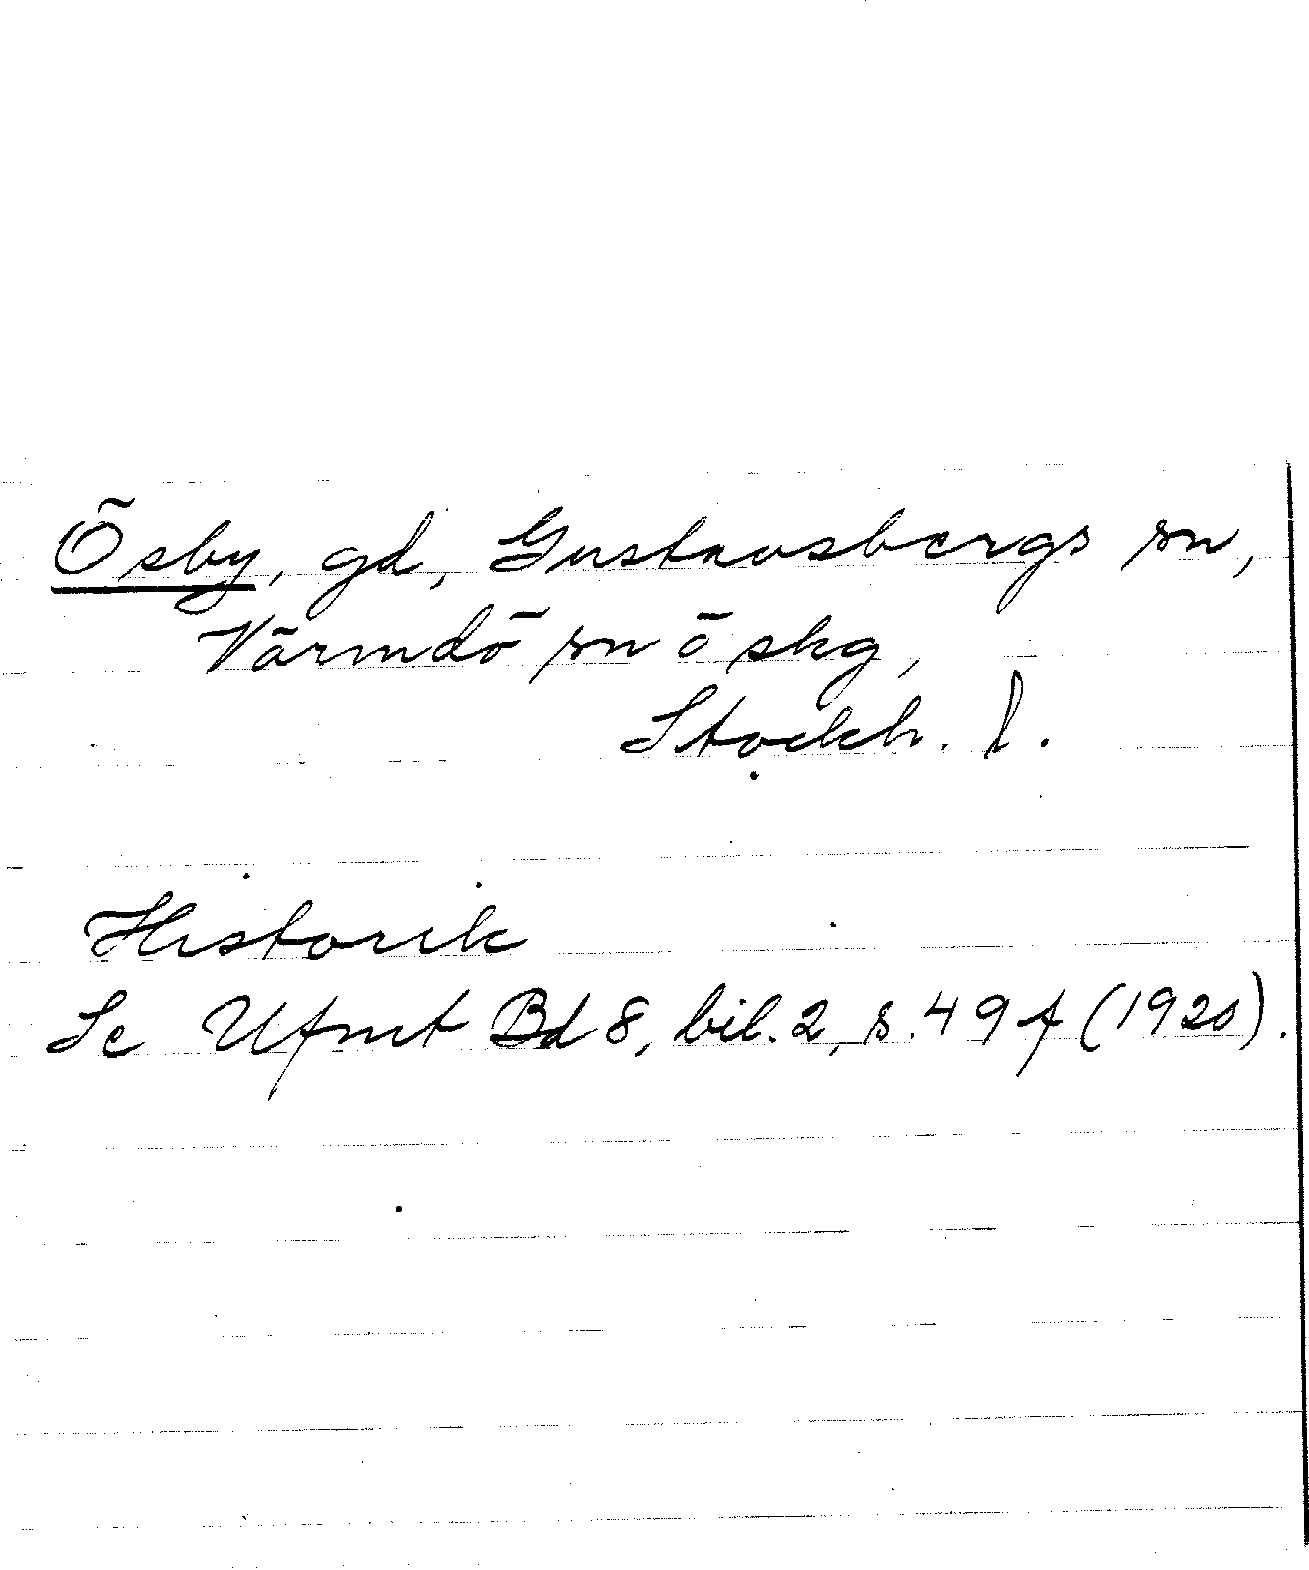 Ösby, gd, Gustavsbergs sn,
Värmdö sn o skg,
Stockh. l.
Historik
Se Ufmt Bd 8, bil. 2, s. 49 f (1920).